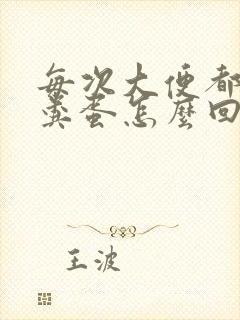 每次大便都
粪蛋怎麼回
王波